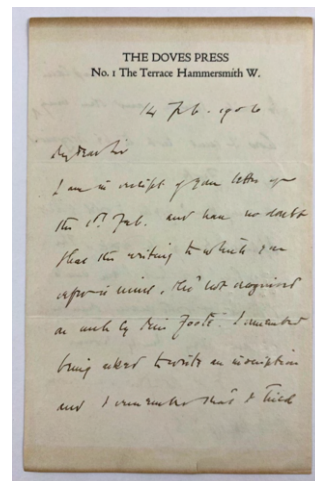 THE DOVES PRESS
No. 1 The Terrace Hammersmith W.
14 Feb. 1906
My dear Sir
I am in receipt of your letter of
the 1st Feb. and have no doubt
that the writing to which you
refer is mine, tho' not
as such by Foote. I remember
being asked to write an inscription
and I remember that I tried